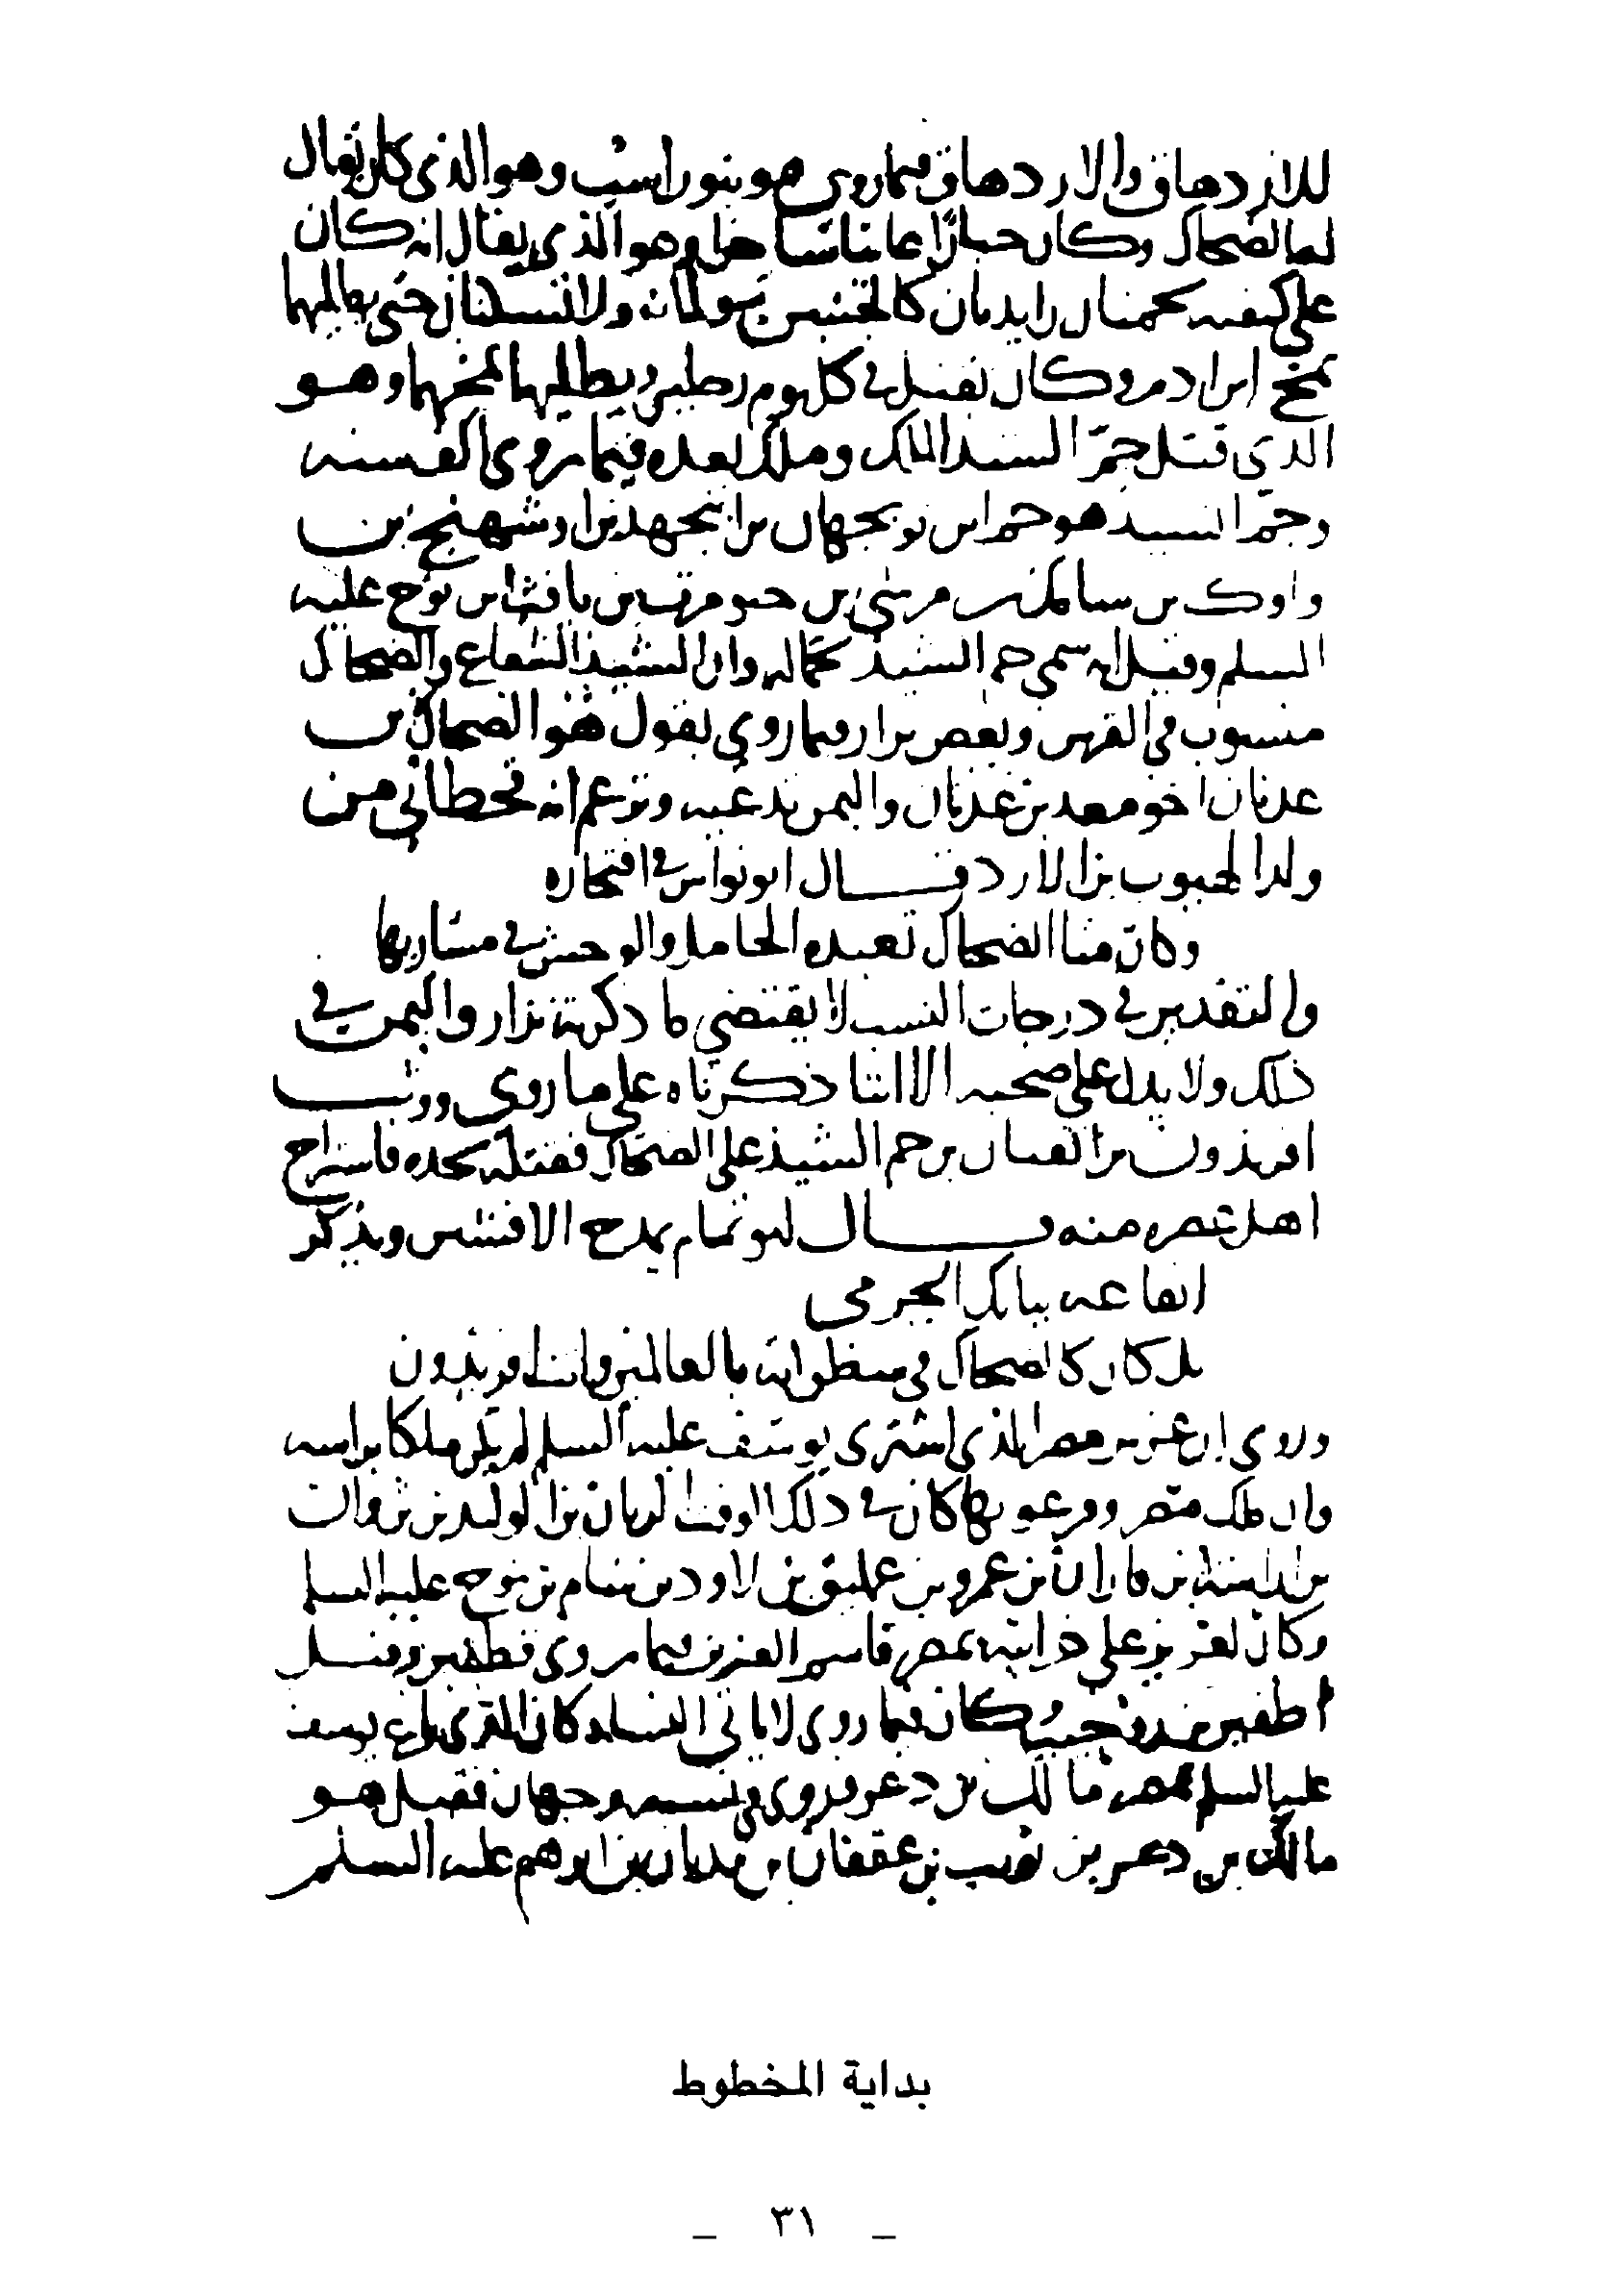 للازدهاق والازدهاق فيما روي هو بنوراسب وهو الذي كان يقال
له الضحاك وكان جبارا عاتيا ساحرا وهو الذي يقال انه كان
على كتفيه لحمتان زايدتان كالحيتين تولمانه ولا تسكنان حتى يطليهما
بمخ ابن ادم وكان يقتل في كل يوم رجلين ويطليهما بمخهما وهو
الذي قتل جم السيد الملك وملك بعده فيما روي الف سنه
وجم السيد هو جم ابن نوبجهان بن اينجهد بن اوشهنج بن
واوك بن سيامك بن مرسى بن حيومرت بن يافث ابن نوح عليه
السلم وقيل انه سمي جم الشيد لجماله وان الشيد الشعاع والضحاك
منسوب في الفرس وبعض نزار فيما روي يقول هو الضحاك بن
عدنان اخو معد بن عدنان واليمن تدعيه وتزعم انه قحطاني من
ولد الهبوب بن الازد قال ابو نواس في افتخاره
وكان منا الضحاك تعبده الخامل والوحش في مساربها
والتقدير في درجات النسب لا يقتضي ما ذكرته نزار واليمن في
ذلك ولا يدل على صحته الا اننا ذكرناه على ما روي ووثب
افريذون بن اثفيان بن جم الشيذ على الضحاك فقتله بحده فاستراح
اهل عصره منه قال ابو تمام يمدح الافشين ويذكر
ايقاعه ببابك الخرمي
بل كان كالضحاك في سطواته بالعالمين وانت افريذون
وروي ان عزيز مصر الذي اشترى يوسف عليه السلم لم يكن ملكا براسه
وان ملك مصر وفرعونها كان في ذلك الوقت الريان بن الوليد بن ثروان
بن اراشه بن فاران بن عمرو بن عمليق بن لاود بن سام بن نوح عليه السلم
وكان العزيز على خزاينه بمصر فاسم العزيز فيما روي قطفير وقيل
اطفير بن روحيب وكان فيما روي لا ياتي النساء وكان الذي باع يوسف
عليه السلم بمصر مالك بن دعر وروي في نسبه وجهان فقيل هو
مالك بن دعر بن نويب بن عقفان بن مديان بن ابرهيم عليه السلم
بداية المخطوط
_ ٣١ _